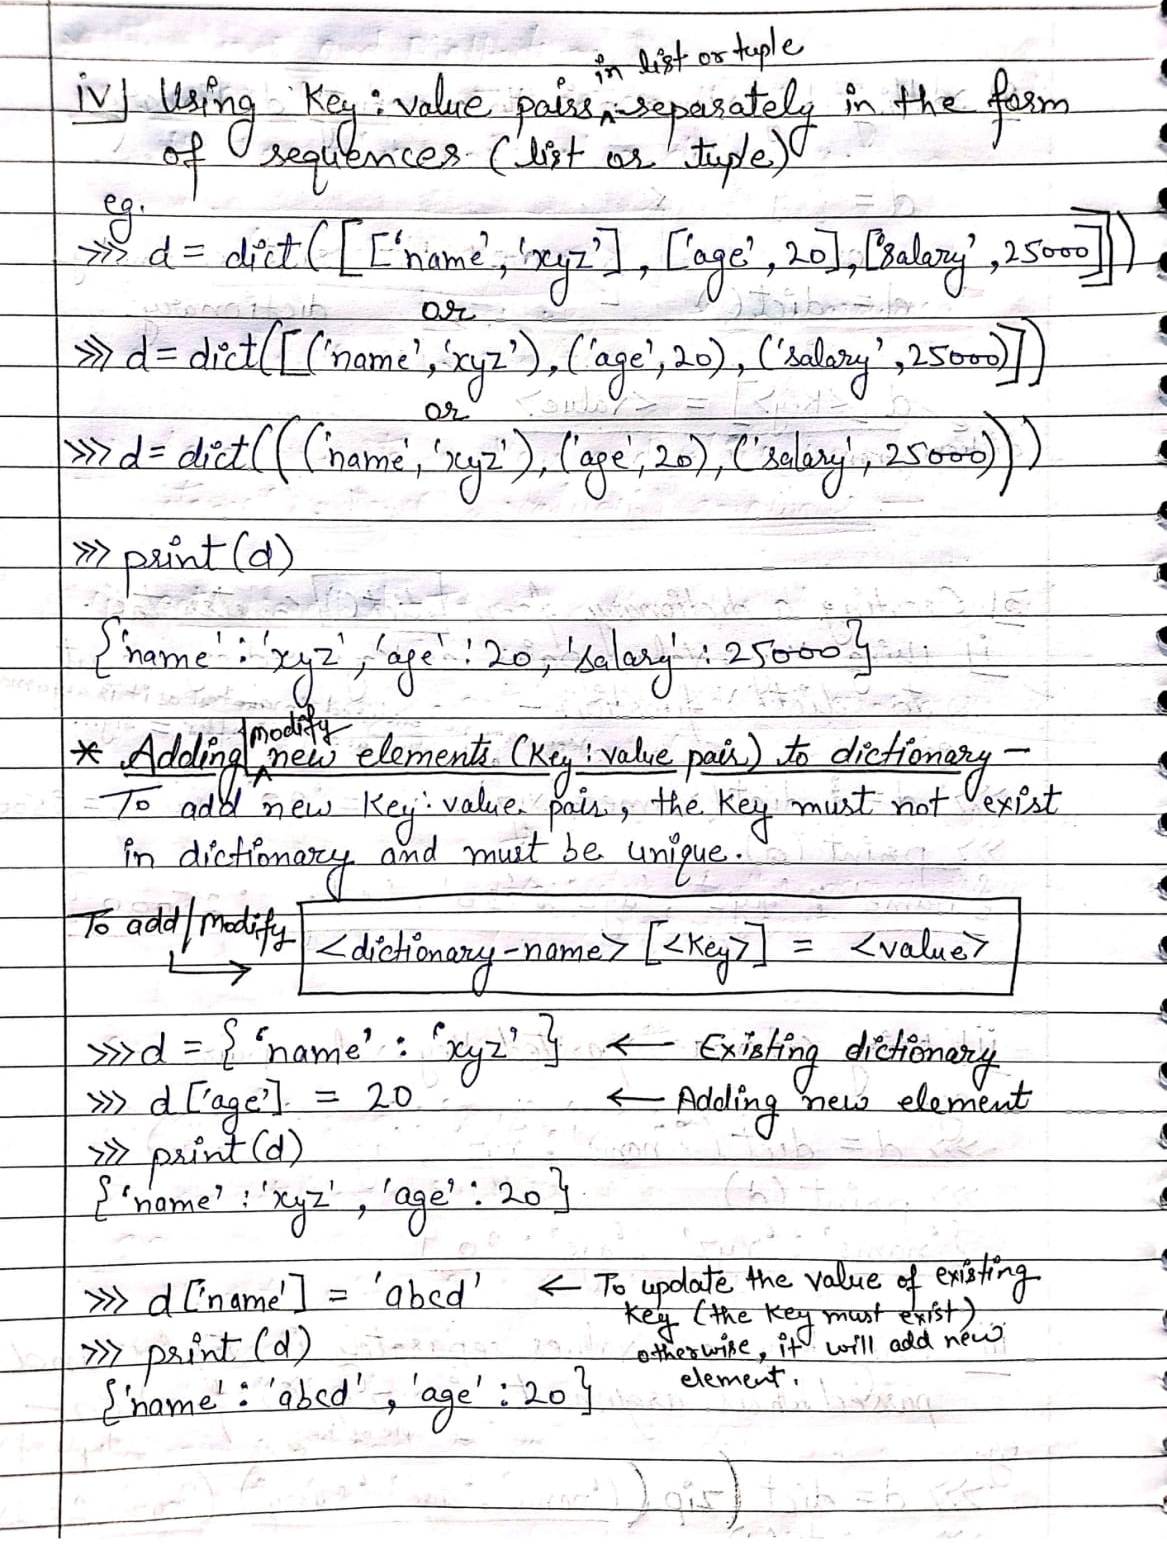 in list or tuple
iv) Using Key : value pairs ^ separately in the form
of sequences (list or tuple)
eg.
>>> d = dict([['name', 'xyz'], ['age', 20], ['salary', 25000]])
or
>>> d = dict([('name', 'xyz'), ('age', 20), ('salary', 25000)])
or
>>> d = dict((('name', 'xyz'), ('age', 20), ('salary', 25000)))
>>> print(d)
{'name' : 'xyz', 'age' : 20, 'salary' : 25000}
/modify
* Adding ^ new elements (Key : value pair) to dictionary -
To add new Key : value pair, the key must not exist
in dictionary and must be unique.
To add/modify
<dictionary-name> [<key>] = <value>
>>> d = { 'name' : 'xyz' } ← Existing dictionary
>>> d ['age'] = 20 ← Adding new element
>>> print(d)
{'name' : 'xyz', 'age' : 20}
>>> d ['name'] = 'abcd' ← To update the value of existing
key (the key must exist)
>>> print (d)
otherwise, it will add new
element.
{'name' : 'abcd', 'age' : 20}